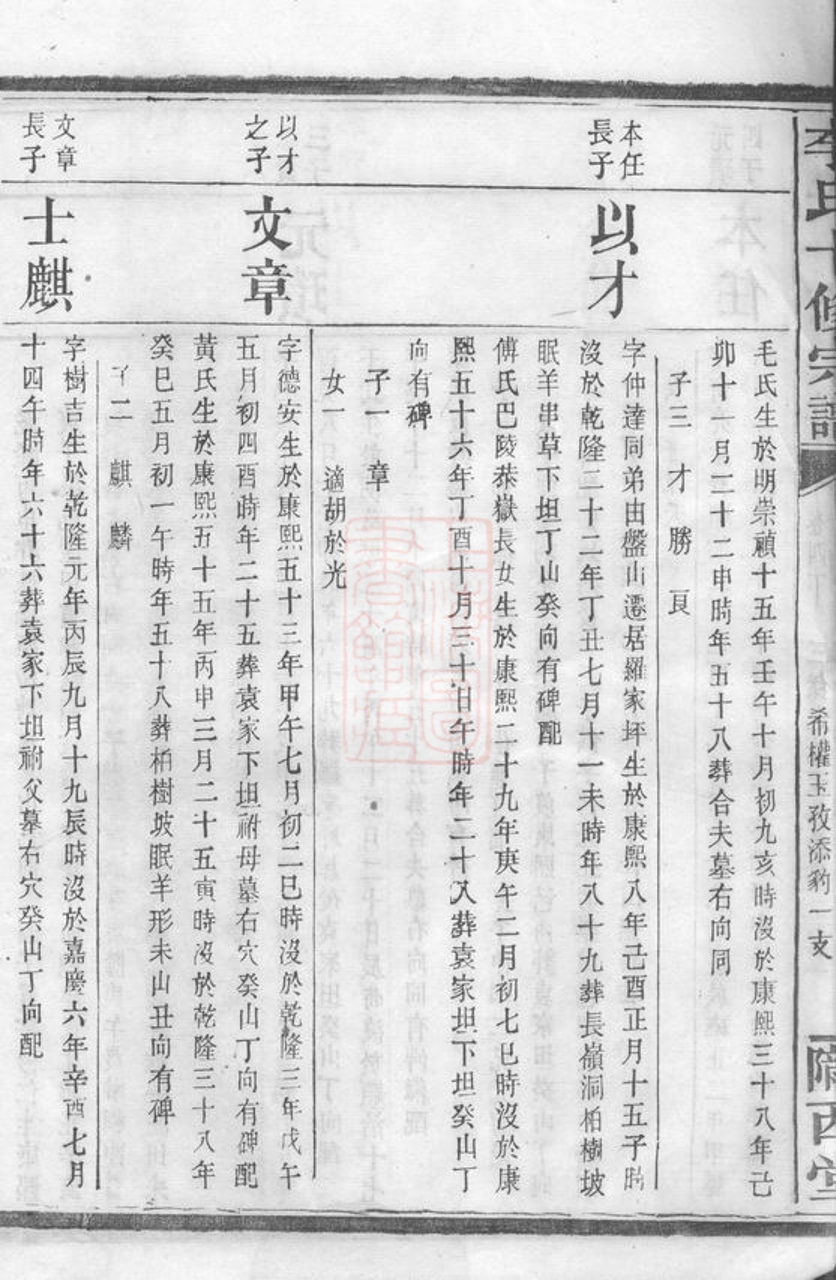 李氏十修宗譜
希權玉孜添豹一支
隴西堂
毛氏生於明崇禎十五年壬午十月初九亥時沒於康熙三十八年己
卯十一月二十二申時年五十八葬合夫墓右向同
子三 才 勝 良
本任
長子
以才
字仲達同弟由盤山遷居羅家坪生於康熙八年己酉正月十五子時
沒於乾隆二十二年丁丑七月十一未時年八十九葬長嶺洞柏樹坡
眠羊串草下坦丁山癸向有碑配
傅氏巴陵恭嶽長女生於康熙二十九年庚午二月初七巳時沒於康
熙五十六年丁酉十月三十日午時年二十八葬袁家坦下坦癸山丁
向有碑
子一 章
女一 適胡於光
以才
之子
文章
字德安生於康熙五十三年甲午七月初二巳時沒於乾隆三年戊午
五月初四酉時年二十五葬袁家下坦祔母墓右穴癸山丁向有碑配
黃氏生於康熙五十五年丙申三月二十五寅時沒於乾隆三十八年
癸巳五月初一午時年五十八葬柏樹坡眠羊形未山丑向有碑
子二 麒 麟
文章
長子
士麒
字樹吉生於乾隆元年丙辰九月十九辰時沒於嘉慶六年辛酉七月
十四午時年六十六葬袁家下坦祔父墓右穴癸山丁向配